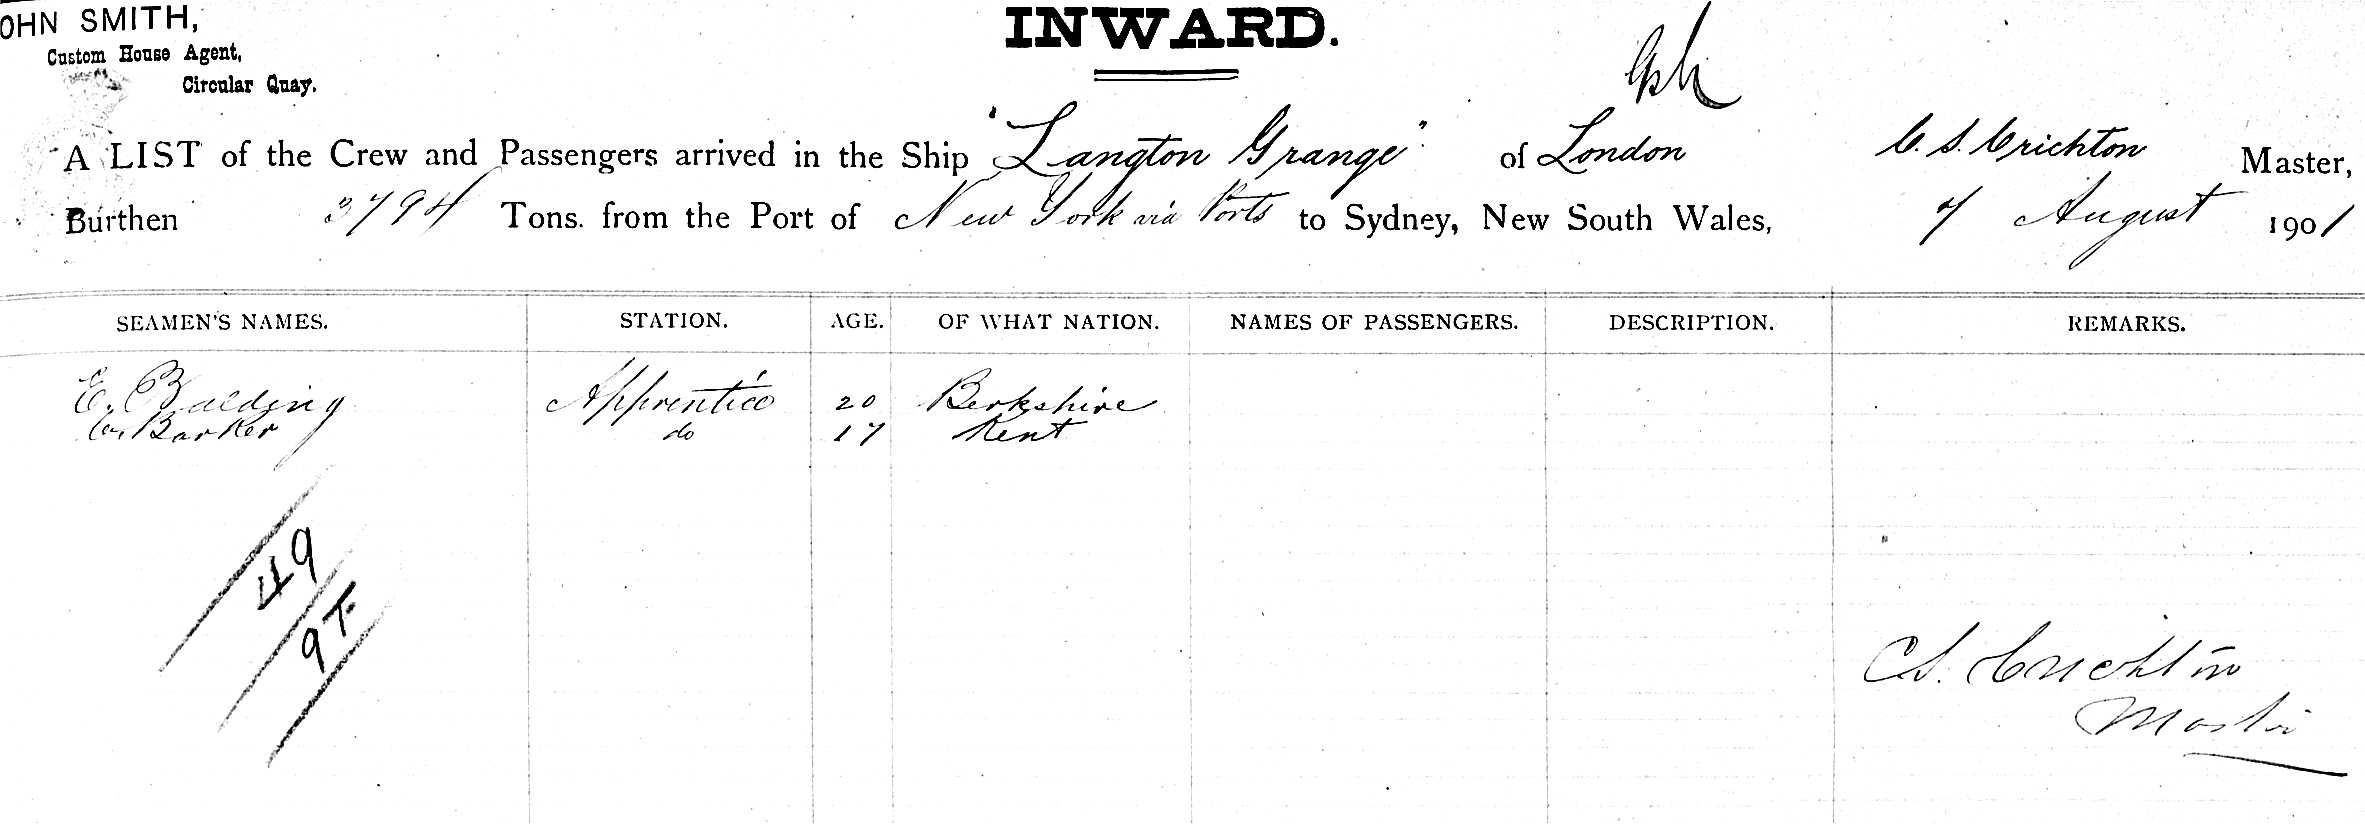 OHN SMITH,
Custom House Agent,
Circular Quay.
INWARD.
A LIST of the Crew and Passengers arrived in the Ship "Langton Grange" of London C. S. Crichton Master,
Burthen 3794 Tons. from the Port of New York via Ports to Sydney, New South Wales, 7 August 1901
SEAMEN'S NAMES. STATION. AGE. OF WHAT NATION. NAMES OF PASSENGERS. DESCRIPTION. REMARKS.
E. Balding Apprentice 20 Berkshire
Barker do 17 Kent
49
9
C S. Crichton
Master